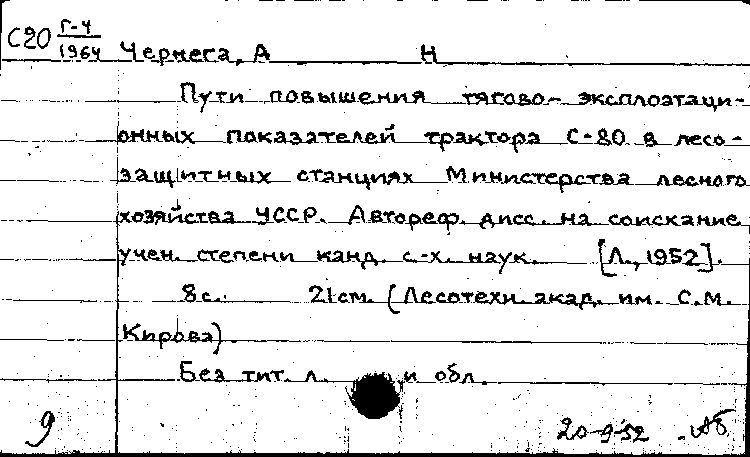 С20 Г-4
1964 Чернега, А Н
Пути повышения тягово- эксплоатаци-
онных показателей трактора С-80 в лесо-
защитных станциях Министерства лесного
хозяйства УССР. Автореф. дисс. на соискание
учен. степени канд. с.-х. наук. [Л., 1952].
8с. 21см. (Лесотехн. акад. им. С.М.
Кирова).
Без тит. л. и обл.
9 20-9-52